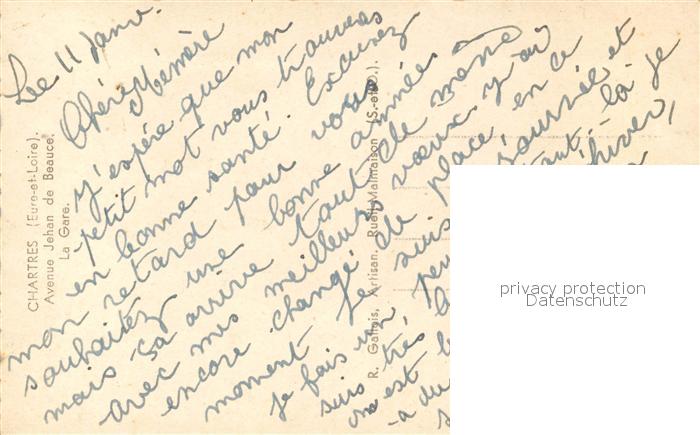 Le 11 Janv.
Chère Mémère
J'espère que mon
petit mot vous trouveras
en bonne santé. Excusez
mon retard pour vous
souhaitez une bonne année
mais sa arrive tout de même
avec mes meilleurs vœux. J'ai
encore changé de place en ce
moment je suis
journée et
je fais un
là je
suis très
hiver,
on est
a du
CHARTRES (Eure-et-Loire).
Avenue Jehan de Beauce.
La Gare.
R. Gallois, Artisan, Rueil-Malmaison (S.-et-O.).
privacy protection
Datenschutz